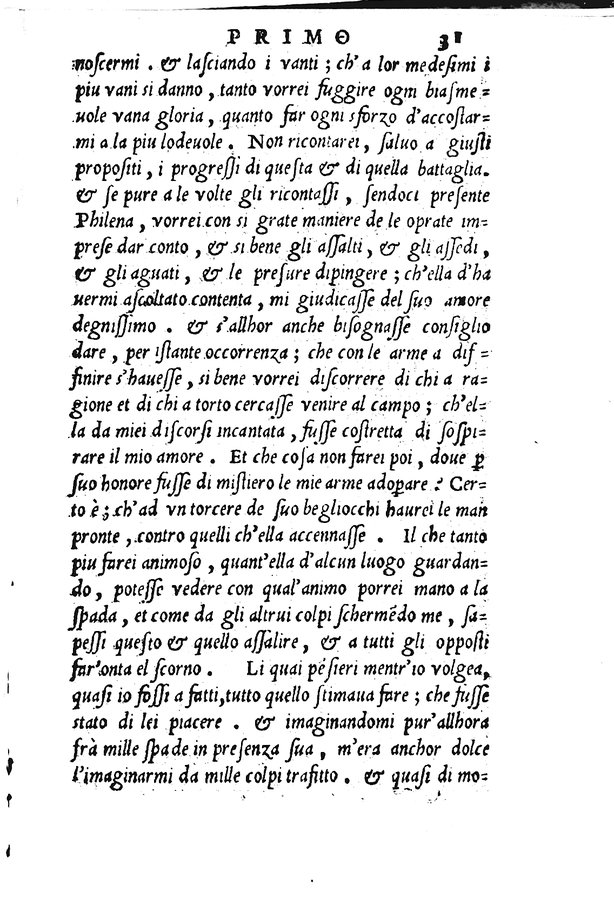 PRIMO 31
noſcermi . & laſciando i vanti ; ch'a lor medeſimi i
piu vani si danno , tanto vorrei fuggire ogni biaſme=
uole vana gloria , quanto far ogni sforzo d'accoſtar=
mi a la piu lodeuole . Non ricontarei , ſaluo a giuſti
propoſiti , i progreſſi di queſta & di quella battaglia.
& ſe pure a le volte gli ricontaſſi , ſendoci preſente
Philena , vorrei con si grate maniere de le oprate im=
preſe dar conto , & si bene gli aſſalti , & gli aſſedi ,
& gli aguati , & le preſure dipingere ; ch'ella d'ha
uermi aſcoltato contenta , mi giudicaſſe del ſuo amore
degniſſimo . & s'allhor anche biſognaſſe conſiglio
dare , per iſtante occorrenza ; che con le arme a dif=
finire s'haueſſe , si bene vorrei diſcorrere di chi a ra=
gione et di chi a torto cercaſſe venire al campo ; ch'el=
la da miei diſcorſi incantata , fuſſe coſtretta di ſoſpi=
rare il mio amore . Et che coſa non farei poi , doue ꝑ
ſuo honore fuſſe di miſtiero le mie arme adoꝑare ? Cer=
to è ; ch'ad vn torcere de ſuo begliocchi haurei le man
pronte , contro quelli ch'ella accennaſſe . Il che tanto
piu farei animoſo , quant'ella d'alcun luogo guardan=
do , poteſſe vedere con qual'animo porrei mano a la
ſpada , et come da gli altrui colpi ſchermẽdo me , ſa=
peſſi queſto & quello aſſalire , & a tutti gli oppoſti
far'onta el ſcorno . Li quai pẽſieri mentr'io volgea,
quaſi io foſſi a fatti, tutto quello ſtimaua fare ; che fuſſe
stato di lei piacere . & imaginandomi pur'allhora
frà mille ſpade in preſenza ſua , m'era anchor dolce
l'imaginarmi da mille colpi trafitto . & quaſi di mo=